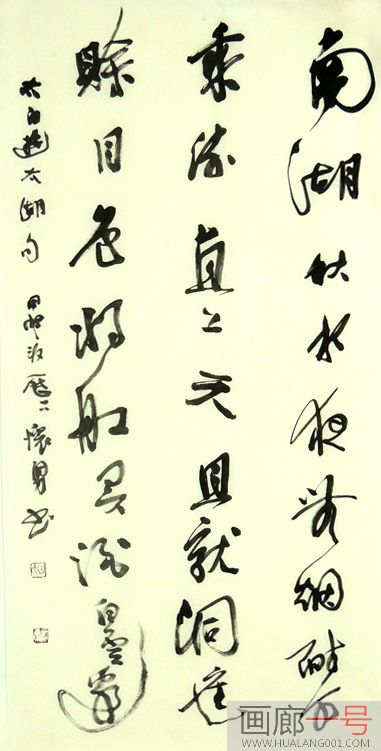 南湖秋水夜無烟耐可
乘流直上天且就洞庭
賒月色將船買酒白雲邊
太白遊太湖句 書
画廊一号
WWW.HUALANG001.COM